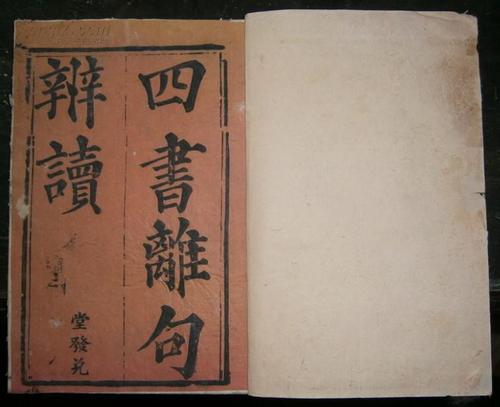 四書離句
辨讀
堂發兌